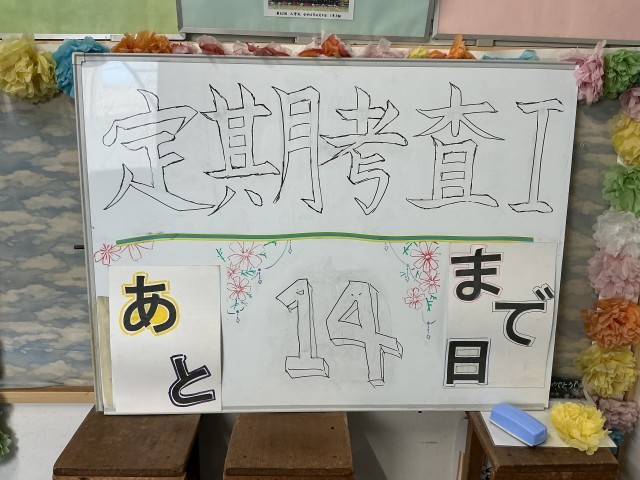 定期考査Ⅰ
まで
あと
14
日